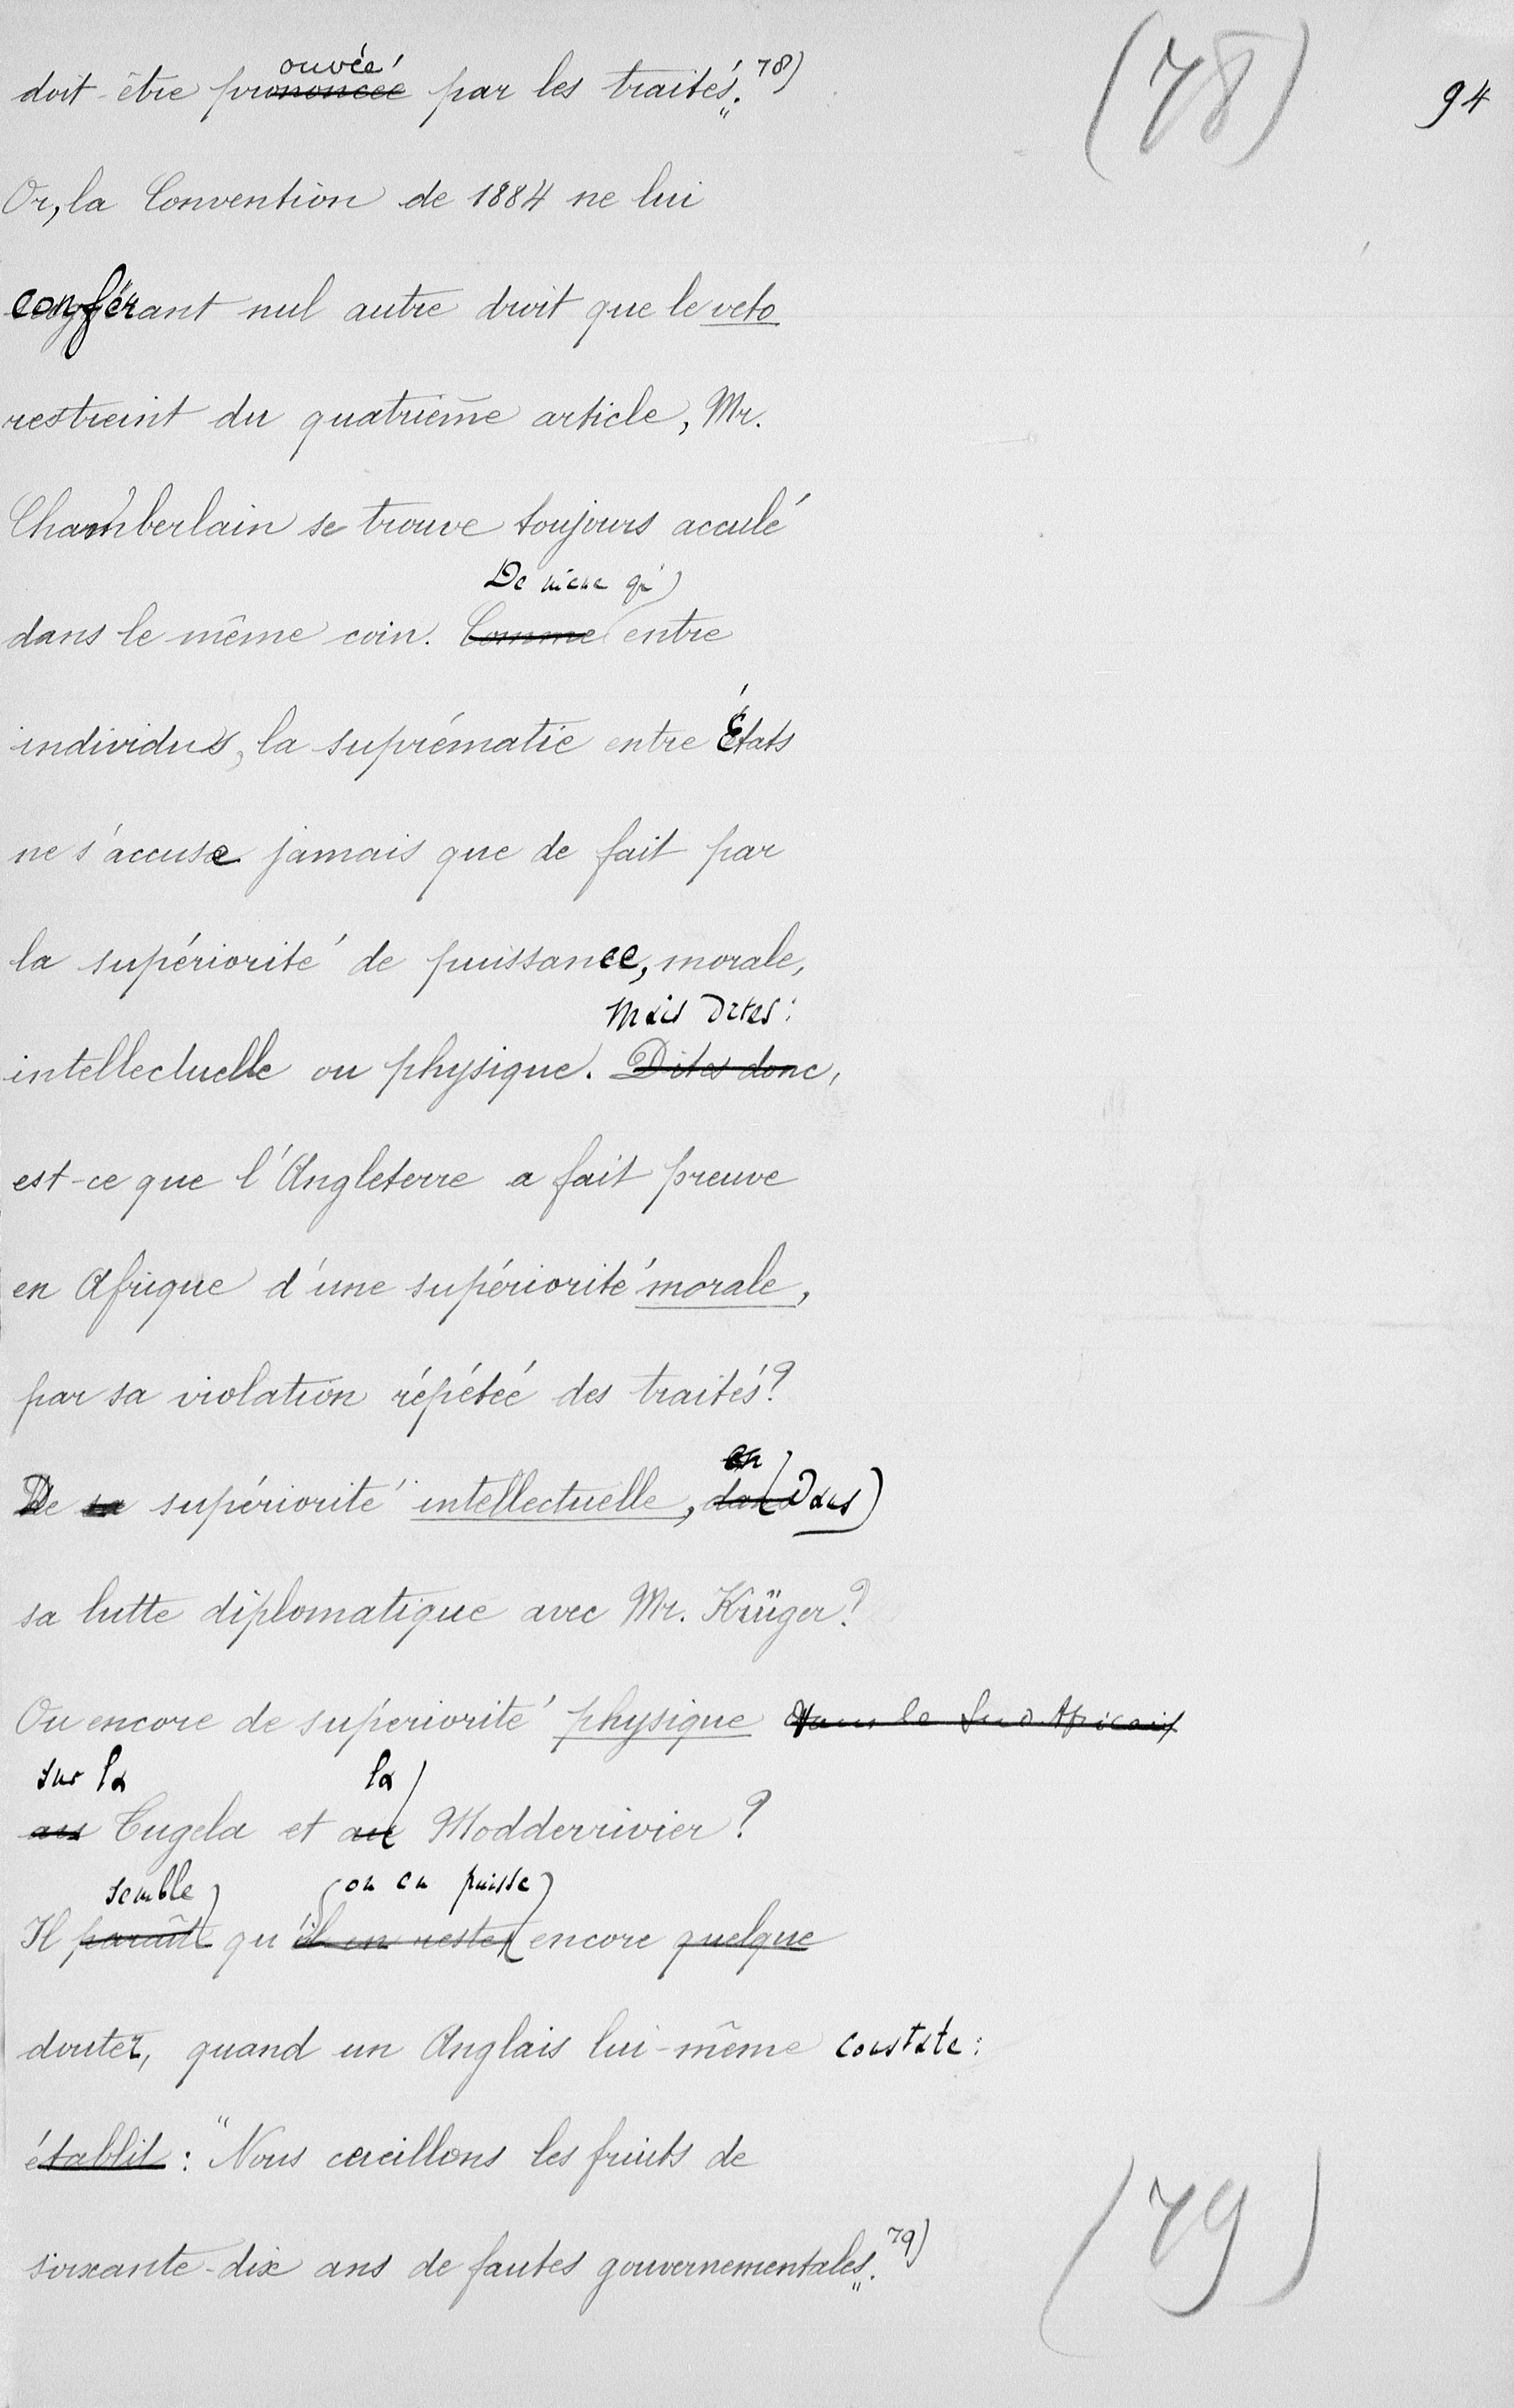 (78) 94
ouvée
doit être prononcée par les traités". 78)
Or, la Convention de 1884 ne lui
conférant nul autre droit que le veto
restreint du quatrième article, Mr.
Chamberlain se trouve toujours acculé
De même qu'
dans le même coin. Comme entre
individus, la suprématie entre États
ne s'accuse jamais que de fait par
la supériorité de puissance, morale,
Mais dites:
intellectuelle ou physique. Dites donc,
est-ce que l'Angleterre a fait preuve
en Afrique d'une supériorité morale,
par sa violation répétée des traités?
en
De sa supériorité intellectuelle, dans dans
sa lutte diplomatique avec Mr. Krüger?
Ou encore de supériorité physique dans le Sud Africain
sur la la
au Tugela et au Modderrivier?
semble on en puisse
Il paraît qu'il en reste encore quelque
douter, quand un Anglais lui-même constate:
établit: "Nous cueillons les fruits de
soixante-dix ans de fautes gouvernementales". 79)
(79)